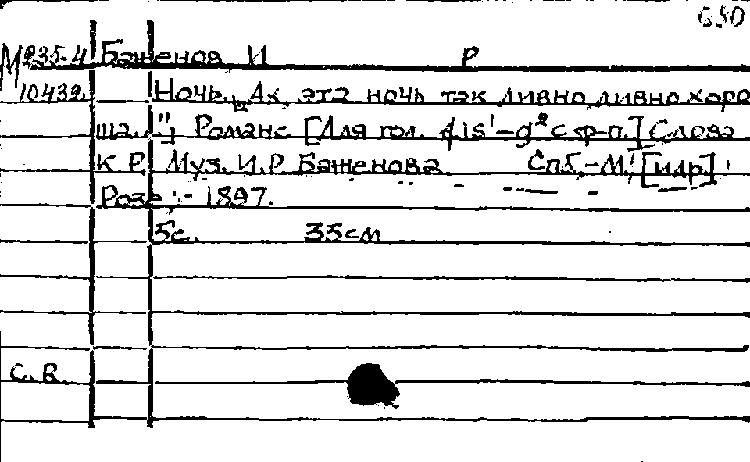 630
М 235-4 Баженов И Р
10439. Ночь. "Ах, эта ночь так дивно, дивно хоро
ша.."; Романс [Для гол. dis¹-g² с ф-п.] Слова
К. Р. Муз. И. Р. Баженова. Спб.-М., [и др.]
Розе, - 1897.
5с. 35см
С. В.